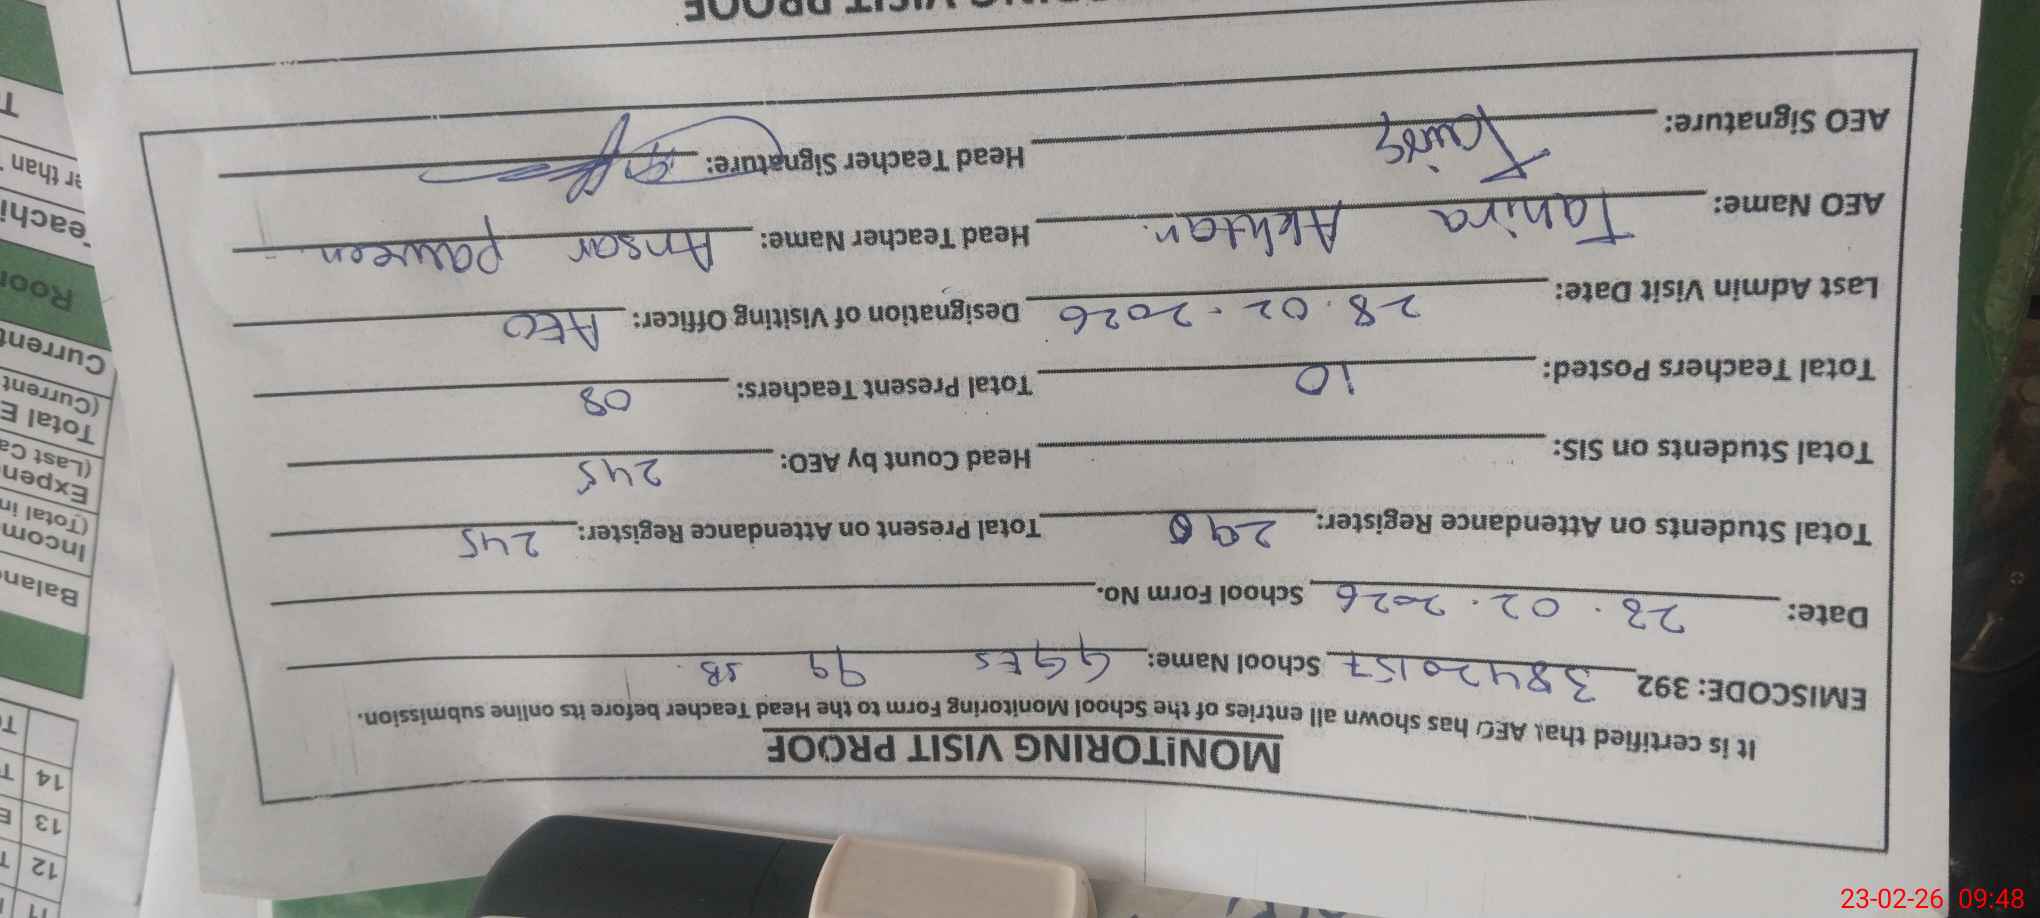 MONITORING VISIT PROOF
It is certified that AEO has shown all entries of the School Monitoring Form to the Head Teacher before its online submission.
EMISCODE: 392 38420157 School Name: GGES 99 SB.
Date: 23.02.2026 School Form No.
Total Students on Attendance Register: 290 Total Present on Attendance Register: 245
Total Students on SIS: Head Count by AEO: 245
Total Teachers Posted: 10 Total Present Teachers: 08
Last Admin Visit Date: 28.02.2026 Designation of Visiting Officer: AEO
AEO Name: Tahira Akhtar. Head Teacher Name: Ansar parveen
AEO Signature: Head Teacher Signature:
VISIT PROOF
11
12
13
14
Balan
Incom
(Total in
Expen
(Last Ca
Total E
(Current
Current
Roo
Teachi
er than
23-02-26 09:48